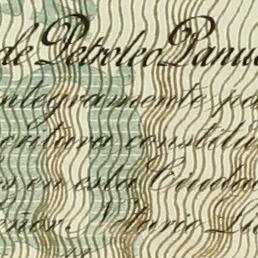 de Petroleo Panu
ntegramente pa
critura constitu
s en esta Ciudad
eñor Notario Li